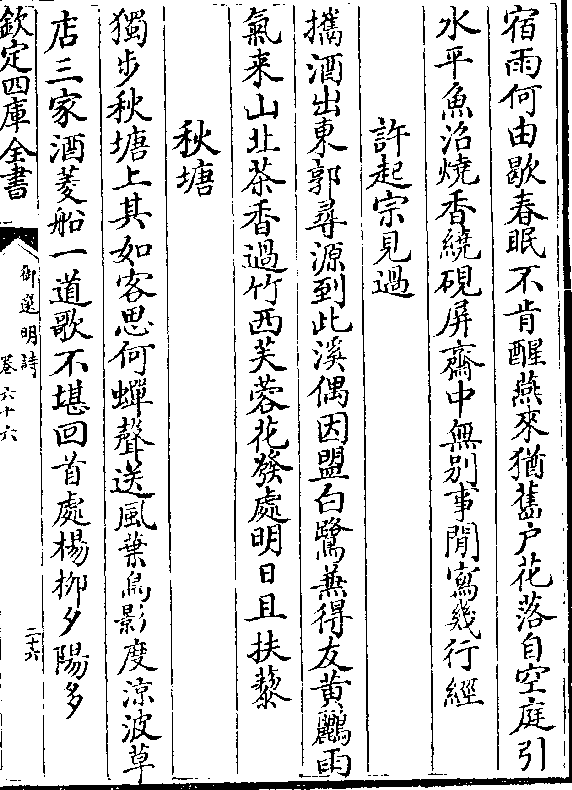 宿雨何由歇春眠不肯醒燕來猶舊户花落自空庭引
水平魚沼燒香繞硯屏齋中無别事閒寫幾行經
許起宗見過
攜酒出東郭尋源到此溪偶因盟白鷺兼得友黄鸝雨
氣来山北茶香過竹西芙蓉花發處明日且扶藜
秋塘
獨步秋塘上其如客思何蟬聲送風葉鳥影度凉波草
店三家酒菱船一道歌不堪回首處楊柳夕陽多
欽定四庫全書
御選明詩
卷六十六
二十六